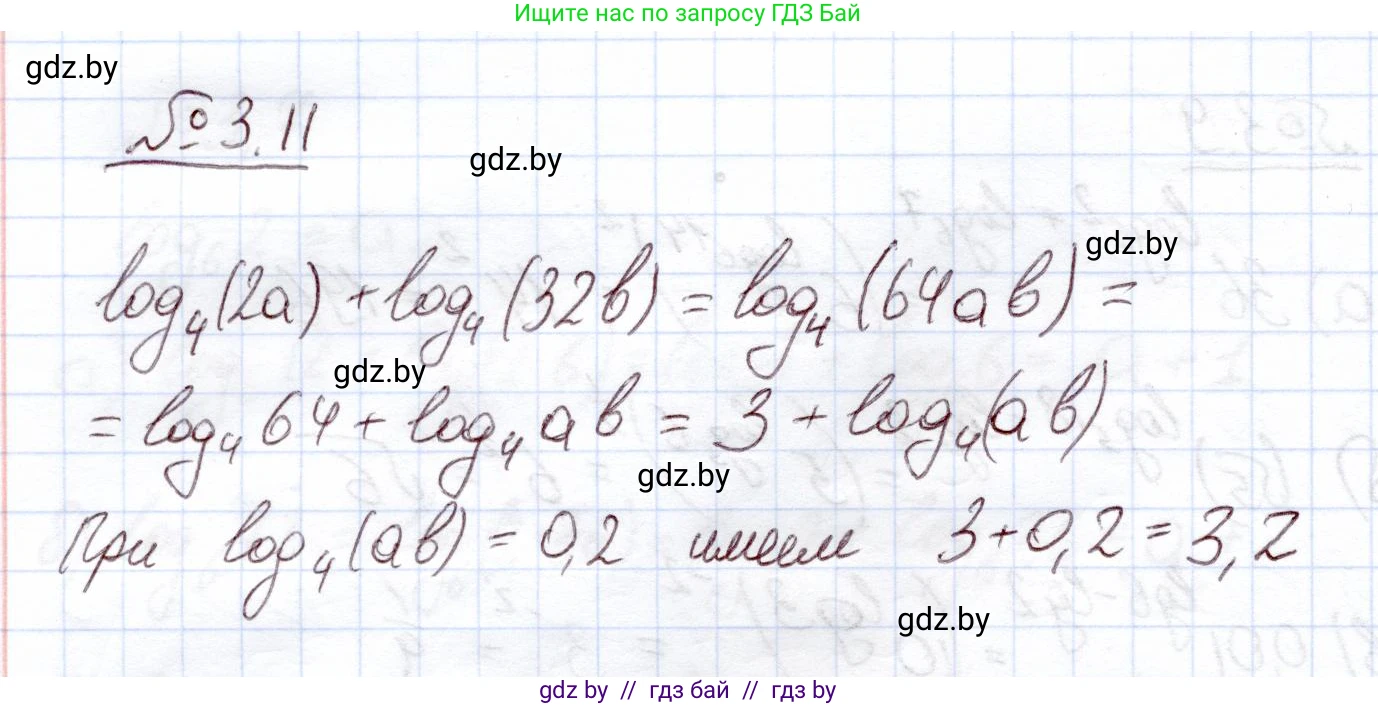 Ищите нас по запросу ГДЗ Бай
gdz.by
№ 3.11
gdz.by
gdz.by
log₄(2a) + log₄(32b) = log₄(64ab) =
gdz.by
= log₄64 + log₄ab = 3 + log₄(ab)
gdz.by
При log₄(ab) = 0,2 имеем 3+0,2 = 3,2
gdz.by
gdz by // гдз бай // гдз by